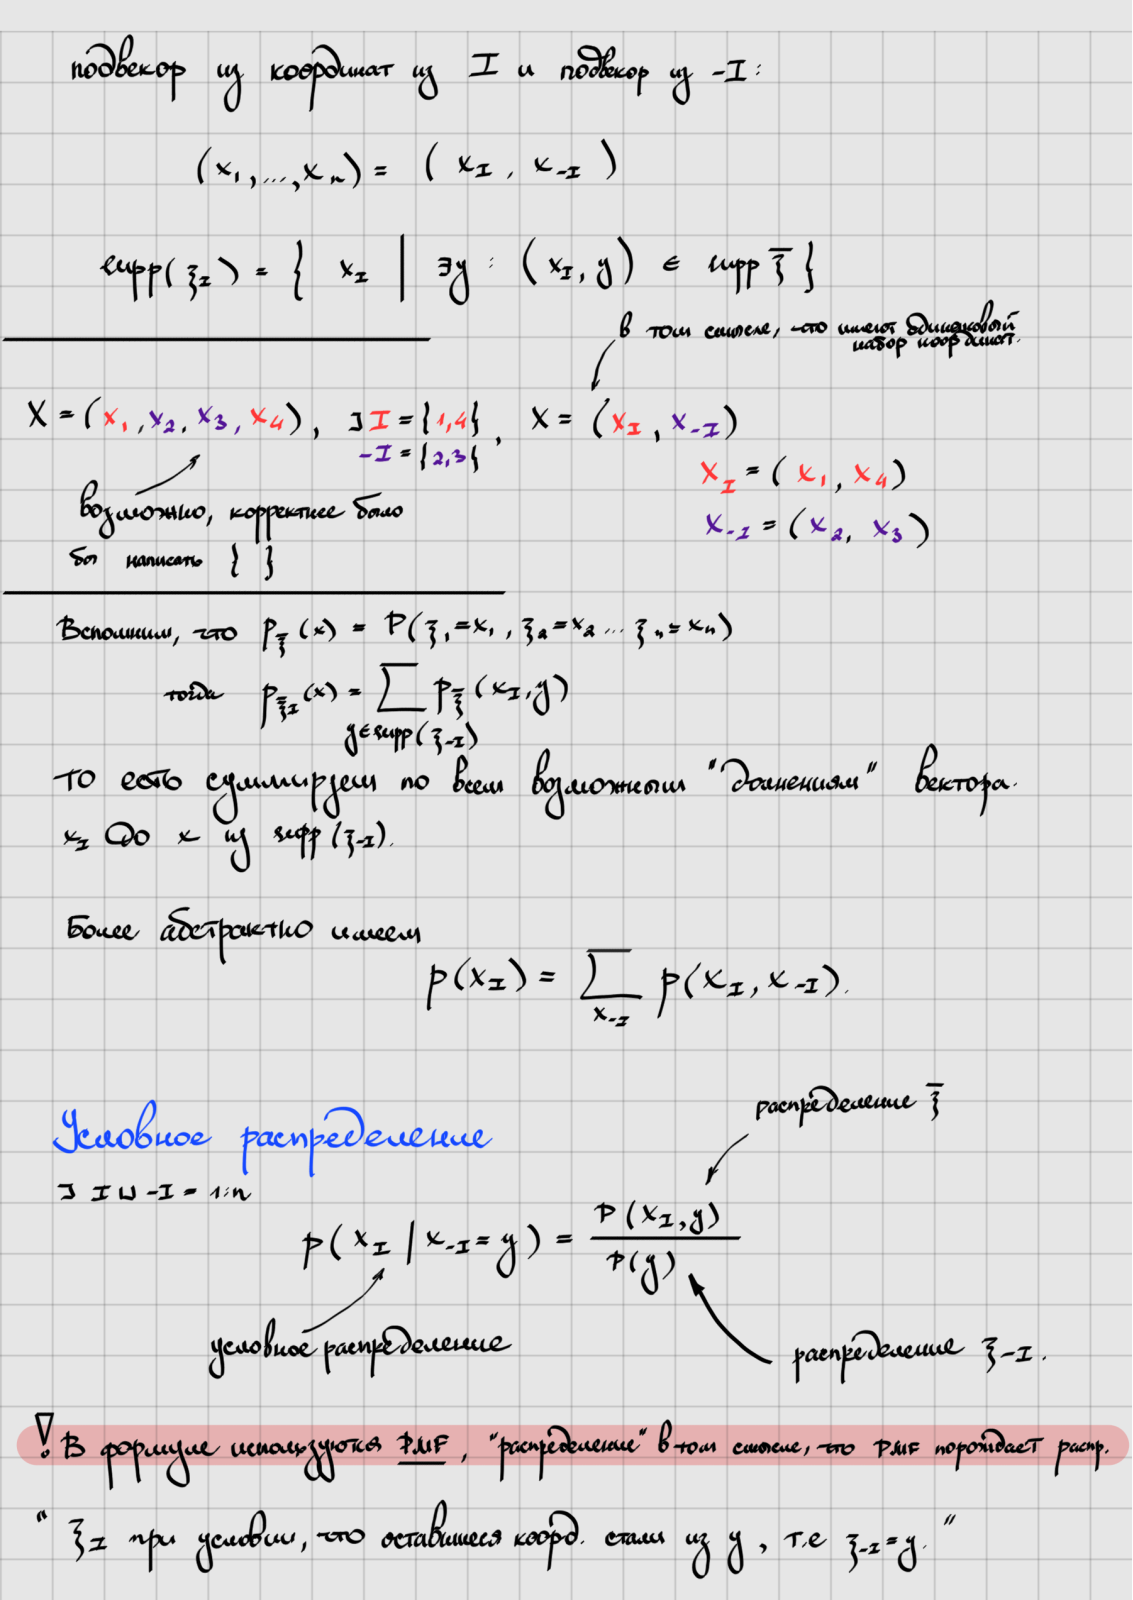 подвекор из координат из I и подвекор из -I:
(x₁,...,xₙ) = (x_I, x_{-I})
supp(ξ_I) = { x_I | ∃y : (x_I, y) ∈ supp ξ̄ }
в том смысле, что имеют одинаковый
набор координат.
X = (x₁, x₂, x₃, x₄), ] I = {1,4}, X = (x_I, x_{-I})
-I = {2,3}
x_I = (x₁, x₄)
x_{-I} = (x₂, x₃)
возможно, корректнее было
бы написать { }
Вспомним, что p_ξ̄(x) = P(ξ₁=x₁, ξ₂=x₂ ... ξₙ=xₙ)
тогда p_{ξ̄_I}(x) = ∑ p_ξ̄(x_I, y)
y∈supp(ξ_{-I})
то есть суммируем по всем возможным "долнениям" вектора.
x_I до x из supp(ξ_{-I}).
Более абстрактно имеем
p(x_I) = ∑ p(x_I, x_{-I}).
x_{-I}
распределение ξ̄
Условное распределение
] I ⊔ -I = 1:n
p(x_I | x_{-I} = y) = P(x_I, y) / P(y)
условное распределение
распределение ξ_{-I}.
! В формуле используются PMF, "распределение" в том смысле, что PMF порождает распр.
" ξ_I при условии, что оставшиеся коорд. стали из y, т.е ξ_{-I}=y. "